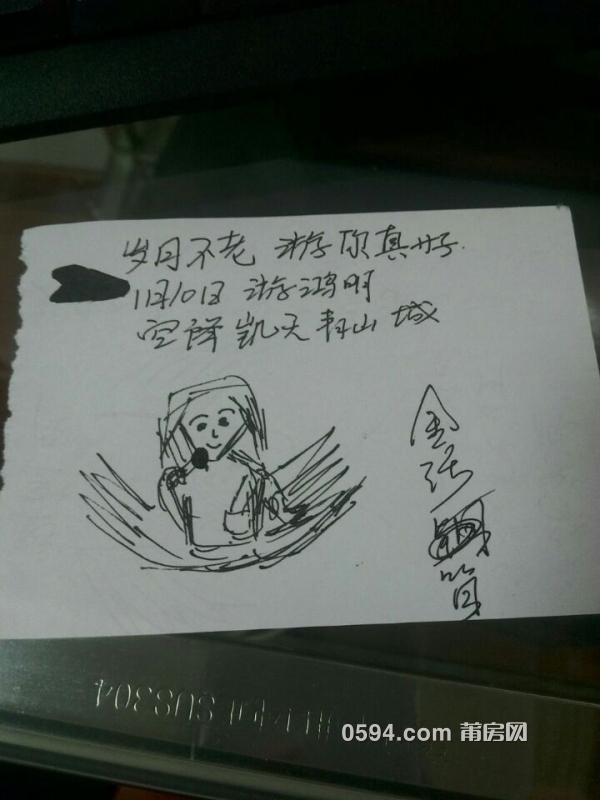 岁月不老 游你真好.
11月10日 游鸿明
空降凯天青山城
金
管
SUS304
0594.com 莆房网